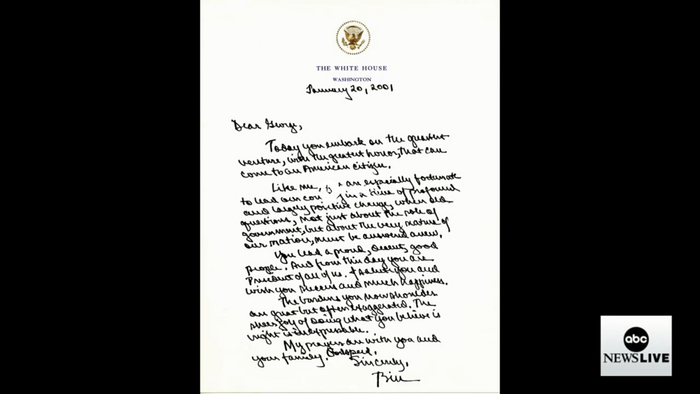 THE WHITE HOUSE
WASHINGTON
January 20, 2001
Dear George,
Today you embark on the greatest
venture, with the greatest honor, that can
come to an American citizen.
Like me, you are especially fortunate
to lead our country in a time of profound
and largely positive change, when old
questions, not just about the role of
government, but about the very nature of
our nation, must be answered anew.
You lead a proud, decent, good
people. And from this day you are
President of all of us. I salute you and
wish you success and much happiness.
The burdens you now shoulder
are great but often exaggerated. The
sheer joy of doing what you believe is
right is inexpressible.
My prayers are with you and
your family. Godspeed.
Sincerely,
Bill
abc
NEWS LIVE